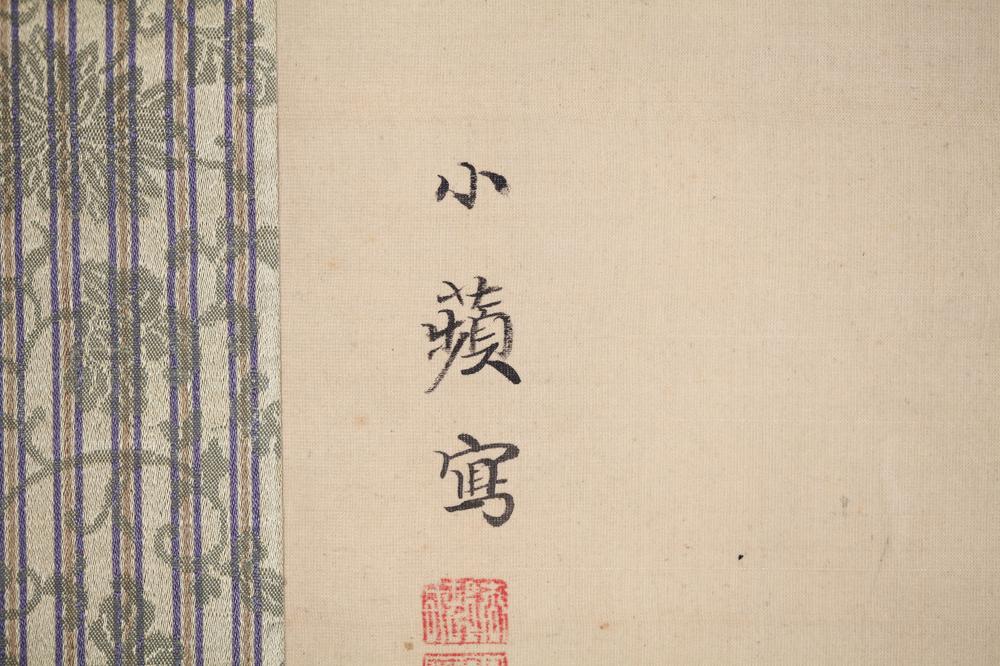 小蘋寫